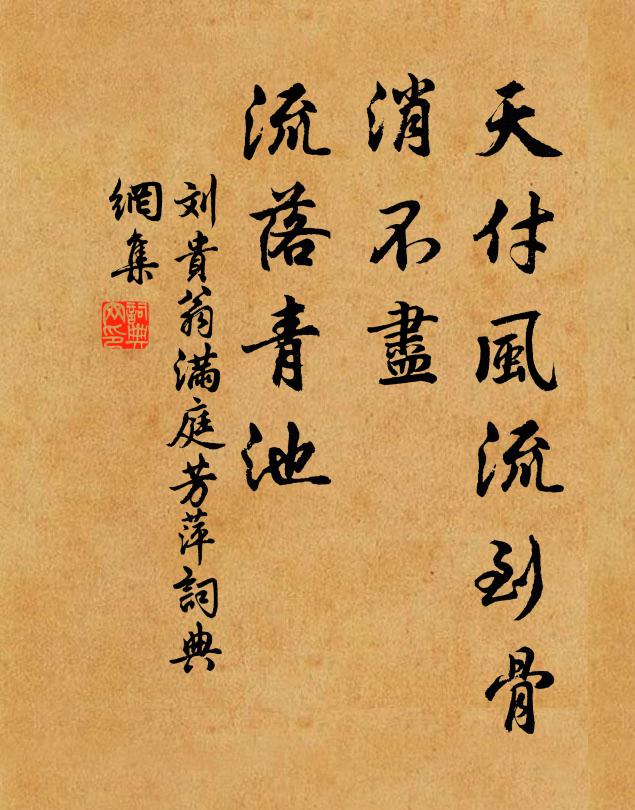 天付風流到骨
消不盡
流落青池
刘貴翁満庭芳萍詞典
網集
詞典網印